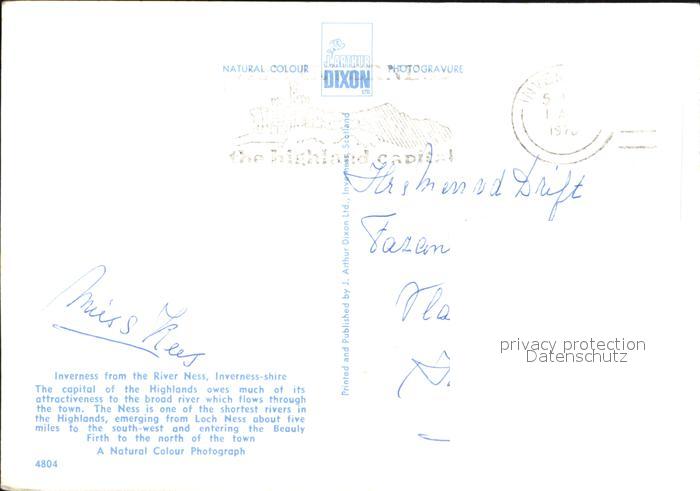 NATURAL COLOUR
J. ARTHUR
DIXON
LTD.
PHOTOGRAVURE
the highland capital
Printed and Published by J. Arthur Dixon Ltd., Inverness, Scotland
Drift
privacy protection
Datenschutz
Inverness from the River Ness, Inverness-shire
The capital of the Highlands owes much of its
attractiveness to the broad river which flows through
the town. The Ness is one of the shortest rivers in
the Highlands, emerging from Loch Ness about five
miles to the south-west and entering the Beauly
Firth to the north of the town
A Natural Colour Photograph
4804